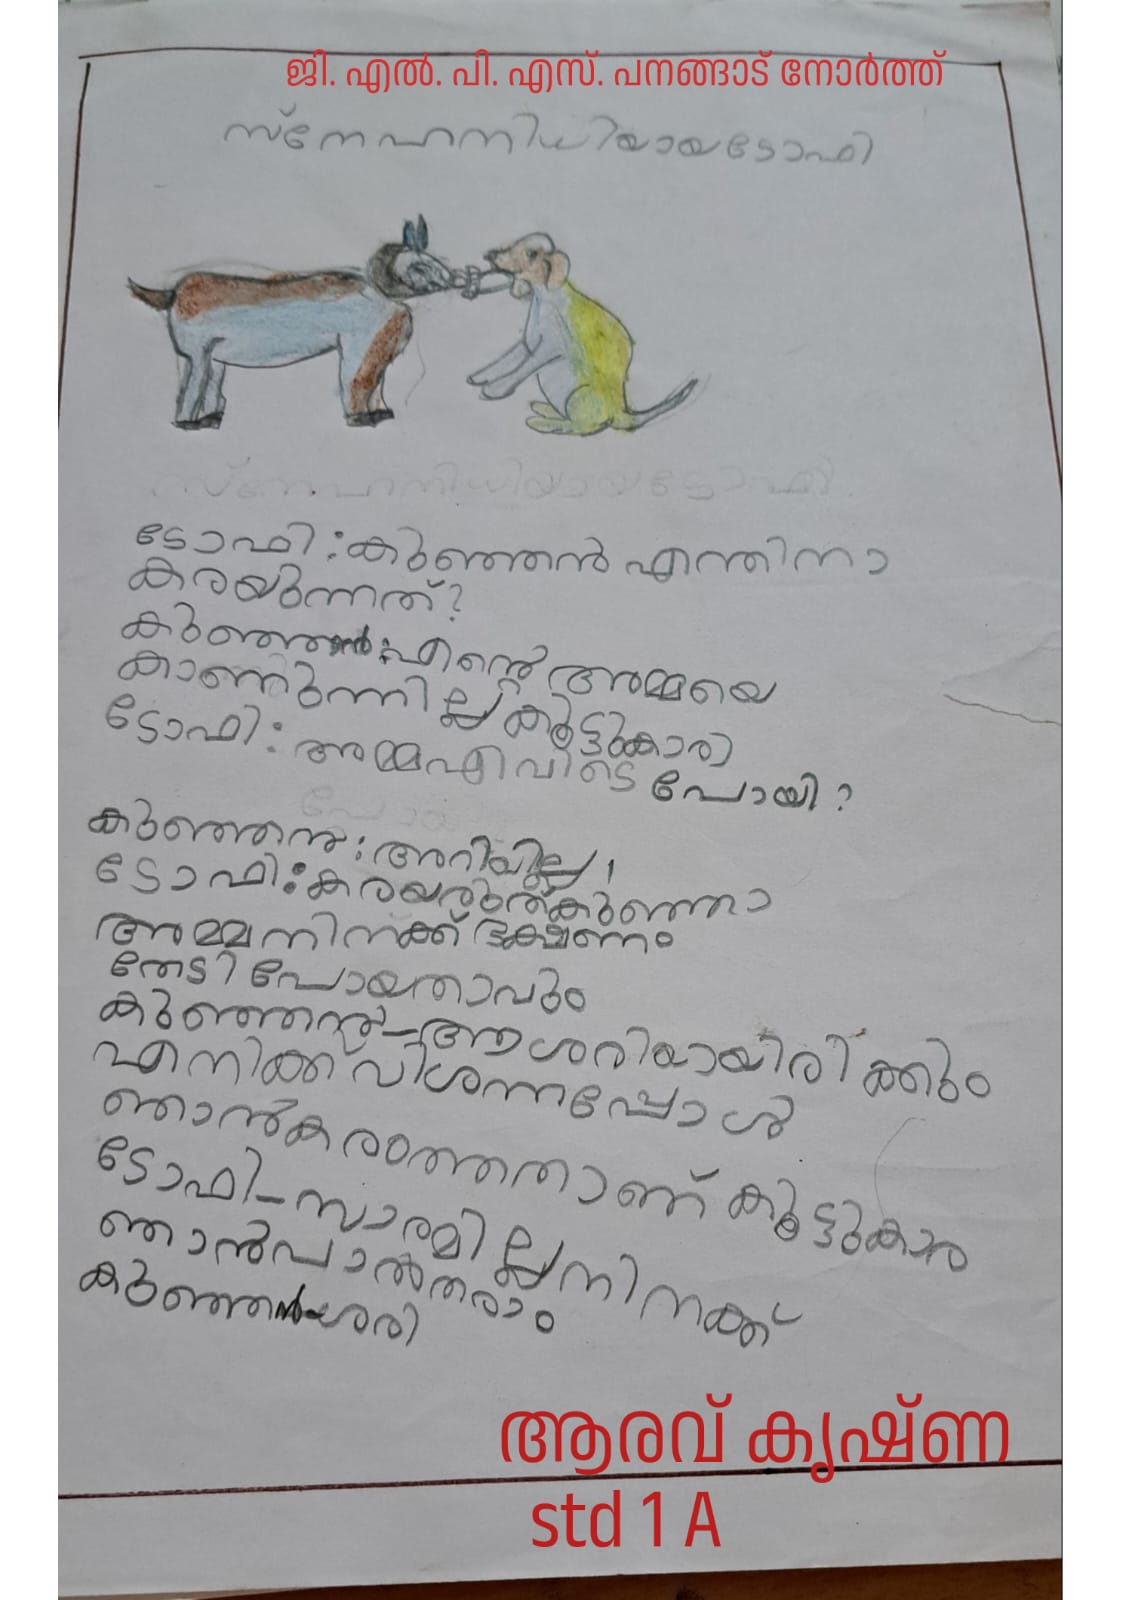 ജി. എൽ. പി. എസ്. പനങ്ങാട് നോർത്ത്
സ്നേഹനിധിയായടോഫി
സ്നേഹനിധിയായടോഫി
ടോഫി:കുഞ്ഞൻ എന്തിനാ
കരയുന്നത്?
കുഞ്ഞൻ:എന്റെ അമ്മയെ
കാണുന്നില്ല കൂട്ടുകാരാ
ടോഫി: അമ്മഎവിടെ പോയി?
കുഞ്ഞൻ:അറിയില്ല,
ടോഫി:കരയരുത്കുഞ്ഞാ
അമ്മ നിനക്ക് ഭക്ഷണം
തേടി പോയതാവും
കുഞ്ഞൻ-ആശരിയായിരിക്കും
എനിക്ക് വിശന്നപ്പോൾ
ഞാൻകരഞ്ഞതാണ് കൂട്ടുകാര
ടോഫി-സാരമില്ലനിനക്ക്
ഞാൻപാൽതരാം
കുഞ്ഞൻ-ശരി
ആരവ് കൃഷ്ണ
std 1 A